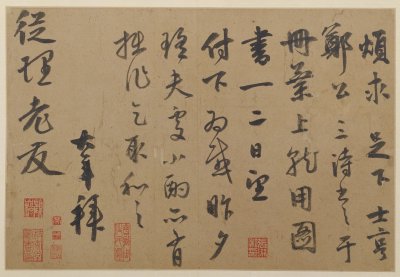 煩求 足下 士亨
鄭公三詩書之于
冊葉上就用圖
書一二日望
付下為感昨夕
瑤夫處小酌亦有
拙作乞取和之
大年拜
從理老友